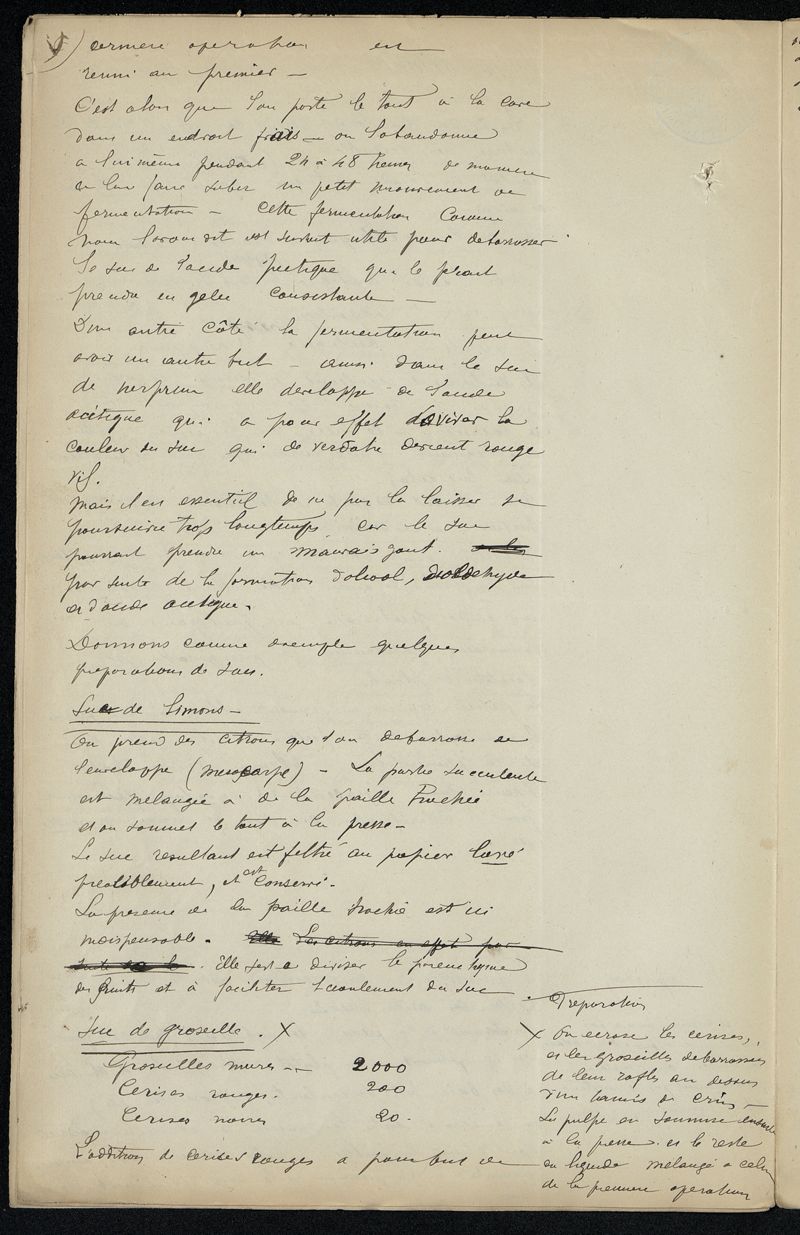 dernière operation est
reuni au premier —
C'est alors que l'on porte le tout à la cave
dans un endroit frais — on l'abandonne
a lui même pendant 24 à 48 heures de maniere
a leur faire subir un petit mouvement de
fermentation — Cette fermentation Comme
nous l'avons dit est surtout utile pour debarrasser
le suc de l'acide pectique qui le ferait
prendre en gelée consistante —
D'un autre Côté la fermentation peut
avoir un autre but — ainsi dans le suc
de nerprun elle developpe de l'acide
acétique qui a pour effet d'aviver la
couleur du suc qui de verdatre devient rouge
vif.
Mais il est essentiel de ne pas la laisser se
poursuivre trop longtemps car le suc
pourrait prendre un mauvais gout.
par suite de la formation d'alcool, d'aldehyde
et d'acide acetique.
Donnons comme exemple quelques
preparations de sucs.
Suc de Limons —
On prend des citrons que l'on debarrasse de
l'enveloppe (mesocarpe) — La partie succulente
est melangée à de la paille hachée
et on soumet le tout à la presse —
Le suc resultant est filtré au papier lavé
prealablement, et est conservé.
La presence de la paille hachée est ici
indispensable. Elle Les citrons en effet par
suite de la. Elle sert a diviser le parenchyme
des fruits et à faciliter l'ecoulement du suc.
Suc de groseille. X
Groseilles mures — 2000
Cerises rouges. 200
Cerises noires 20.
L'addition de cerises rouges a pour but de
Preparation
X On ecrase les cerises,
et les groseilles debarrassées
de leur rafles au dessus
d'un tamis de crin —
La pulpe est soumise ensuite
à la presse. et le reste
du liquide melangé a celui
de la premiere operation